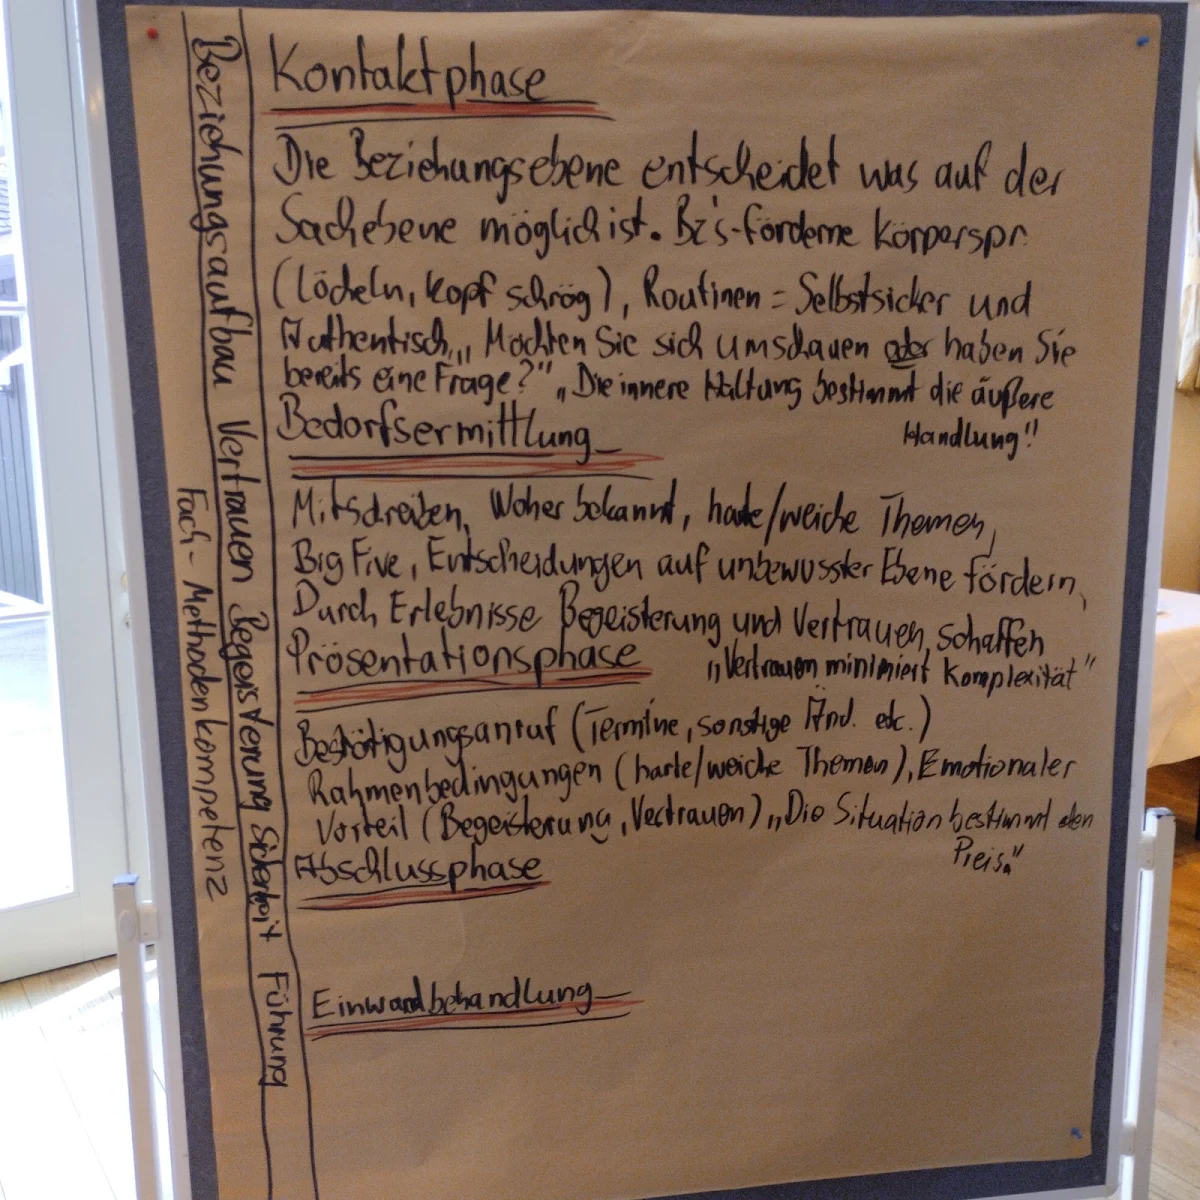 Kontaktphase
Die Beziehungsebene entscheidet was auf der
Sachebene möglich ist. Bz's-förderne Körperspr.
(Lächeln, Kopf schräg), Routinen = Selbstsicker und
Authentisch, „Möchten Sie sich umschauen oder haben Sie
bereits eine Frage?" „Die innere Haltung bestimmt die äußere
Handlung"!
Bedarfsermittlung
Mitschreiben, Woher bekannt, harte/weiche Themen,
Big Five, Entscheidungen auf unbewusster Ebene fördern,
Durch Erlebnisse Begeisterung und Vertrauen schaffen
Präsentationsphase „Vertrauen minimiert Komplexität"
Bestätigungsanruf (Termine, sonstige Änd. etc.)
Rahmenbedingungen (harte/weiche Themen), Emotionaler
Vorteil (Begeisterung, Vertrauen) „Die Situation bestimmt den
Preis."
Abschlussphase
Einwandbehandlung
Beziehungsaufbau Vertrauen Begeisterung Sicherheit Führung
Fach- Methodenkompetenz